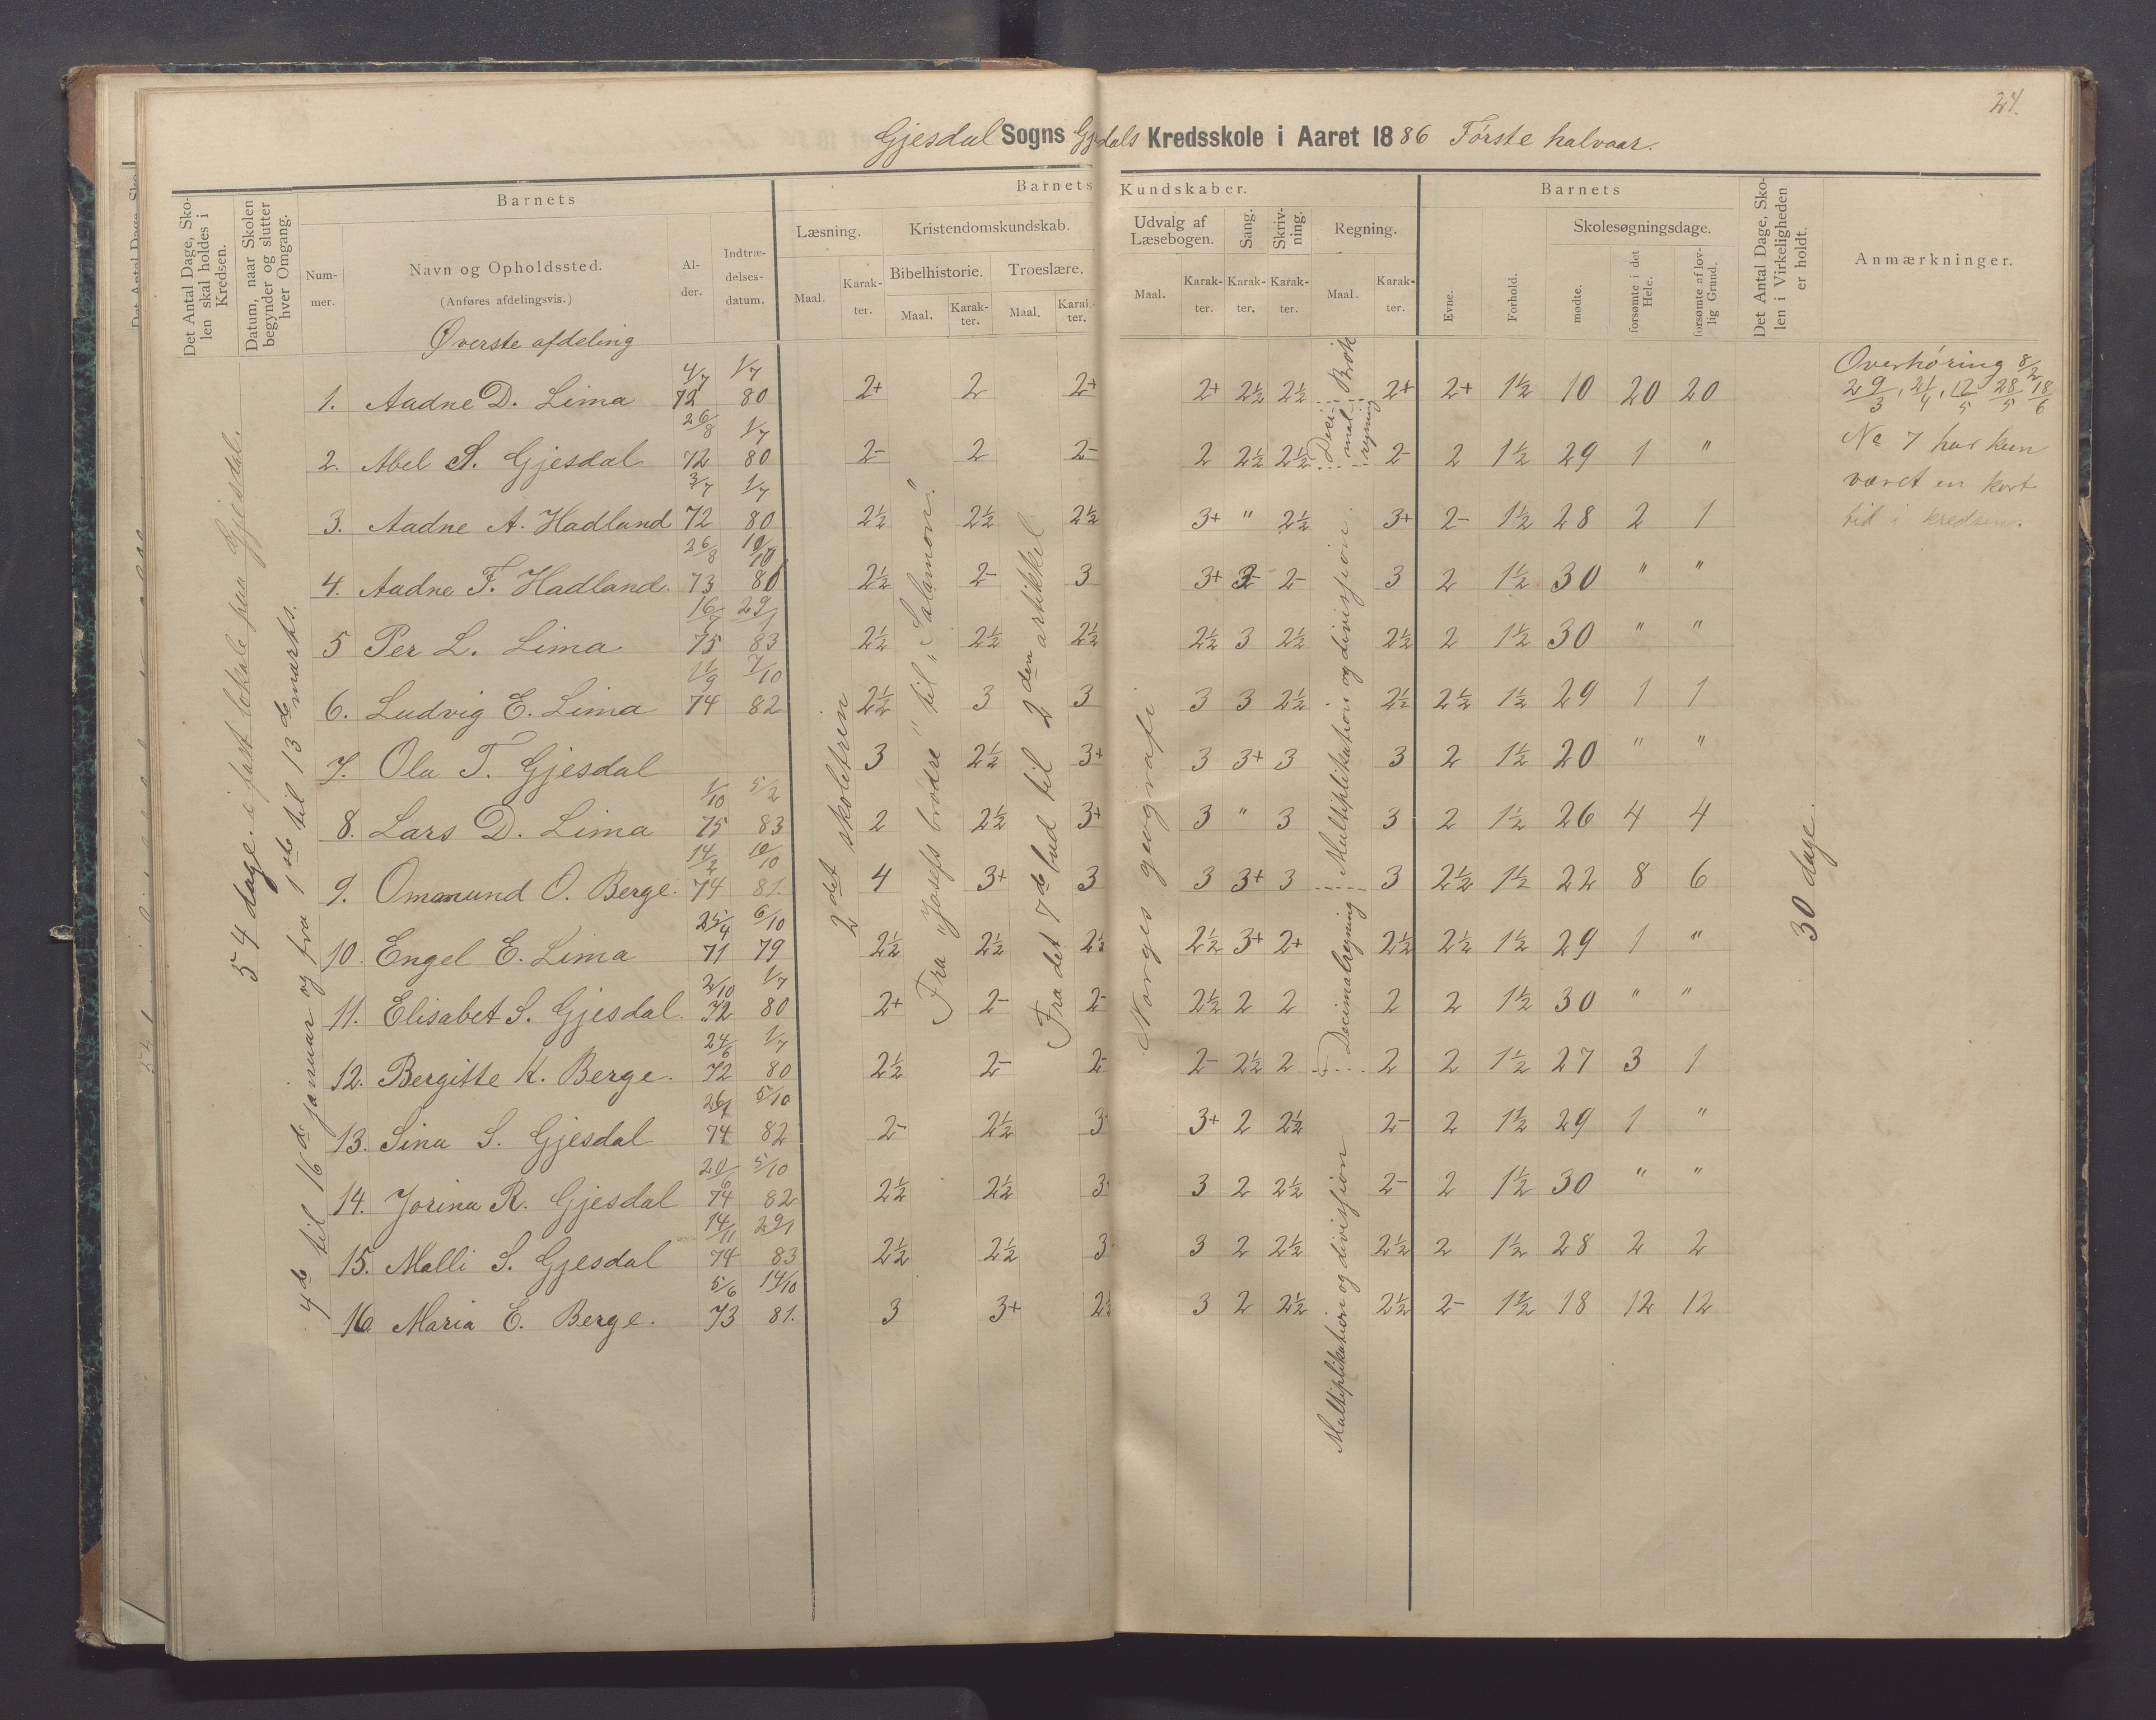 24.
Gjesdal Sogns Gjesdals Kredsskole i Aaret 1886 Første halvaar.
Det Antal Dage, Skolen skal holdes i Kredsen.
Datum, naar Skolen begynder og slutter hver Omgang.
Barnets
Nummer.
Navn og Opholdssted.
(Anføres afdelingsvis.)
Alder.
Indtrædelsesdatum.
Barnets Kundskaber.
Læsning.
Maal.
Karakter.
Kristendomskundskab.
Bibelhistorie.
Maal.
Karakter.
Troeslære.
Maal.
Karakter.
Udvalg af Læsebogen.
Maal.
Karakter.
Sang.
Karakter.
Skrivning.
Karakter.
Regning.
Maal.
Karakter.
Barnets
Evne.
Forhold.
Skolesøgningsdage.
mødte.
forsømte i det Hele.
forsømte af lovlig Grund.
Det Antal Dage, Skolen i Virkeligheden er holdt.
Anmærkninger.
Øverste afdeling
54 dage. i fast lokale paa Gjesdal.
4de til 16de januar og fra 1ste til 13de marts.
2det skoletrin
Fra "Josefs brødre" til "Salamon".
Fra det 7de bud til 2den artikkel
Norges geografi
Brøk
Decimalregning
Multiplikation og division.
Decimalregning
Multiplikation og division
30 dage.
1. Aadne D. Lima 4/7 72 1/7 80 2+ 2 2+ 2+ 2½ 2½ 2+ 2+ 1½ 10 20 20
2. Abel S. Gjesdal 26/8 72 1/7 80 2- 2 2- 2 2½ 2½ 2- 2 1½ 29 1 "
3. Aadne A. Hadland 3/7 72 1/7 80 2½ 2½ 2½ 3+ " 2½ 3+ 2- 1½ 28 2 1
4. Aadne F. Hadland. 26/8 73 10/10 80 2½ 2- 3 3+ 3 2- 3 2 1½ 30 " "
5 Per L. Lima 16/7 75 29/1 83 2½ 2½ 2½ 2½ 3 2½ 2½ 2 1½ 30 " "
6. Ludvig E. Lima 11/9 74 7/10 82 2½ 3 3 3 3 2½ 2½ 2½ 1½ 29 1 1
7. Ola T. Gjesdal 3 2½ 3+ 3 3+ 3 3 2 1½ 20 " "
8. Lars D. Lima 1/10 75 5/2 83 2 2½ 3+ 3 " 3 3 2 1½ 26 4 4
9. Ommund O. Berge. 14/2 74 10/10 81. 4 3+ 3 3 3+ 3 3 2½ 1½ 22 8 6
10. Engel E. Lima 25/4 71 6/10 79 2½ 2½ 2½ 2½ 3+ 2+ 2½ 2½ 1½ 29 1 "
11. Elisabet S. Gjesdal. 2/10 72 1/7 80 2+ 2- 2- 2½ 2 2 2 2 1½ 30 " "
12. Bergitte K. Berge. 24/6 72 1/7 80 2½ 2- 2- 2- 2½ 2 2 2 1½ 27 3 1
13. Sina S. Gjesdal 26/1 74 5/10 82 2- 2½ 3 3+ 2 2½ 2- 2 1½ 29 1 "
14. Jorina R. Gjesdal 20/6 74 5/10 82 2½ 2½ 3 3 2 2½ 2- 2 1½ 30 " "
15. Malli S. Gjesdal 14/11 74 29/1 83 2½ 2½ 3 3 2 2½ 2½ 2 1½ 28 2 2
16. Maria E. Berge. 5/6 73 14/10 81. 3 3+ 2½ 3 2 2½ 2½ 2- 1½ 18 12 12
Overhøring 8/2
29/3, 21/4, 12/5 28/5 18/6
No 7 har kun
været en kort
tid i kredsen.